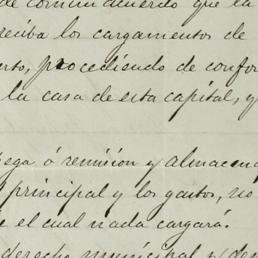 de comun acuerdo que la
reciba los cargamentos de
procediendo de confor
la casa de esta capital, y
ó remision y almacen
principal y los gastos, no
el cual nada cargará.
derecho municipal y de